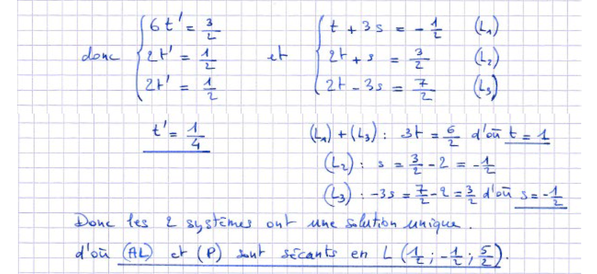 donc { 6t' = 3/2 et { t + 3s = -1/2 (L₁)
2t' = 1/2 2t + s = 3/2 (L₂)
2t' = 1/2 2t - 3s = 7/2 (L₃)
t' = 1/4 (L₁) + (L₃) : 3t = 6/2 d'où t = 1
(L₂) : s = 3/2 - 2 = -1/2
(L₃) : -3s = 7/2 - 2 = 3/2 d'où s = -1/2
Donc les 2 systèmes ont une solution unique.
d'où (AL) et (P) sont sécants en L (1/2 ; -1/2 ; 5/2).